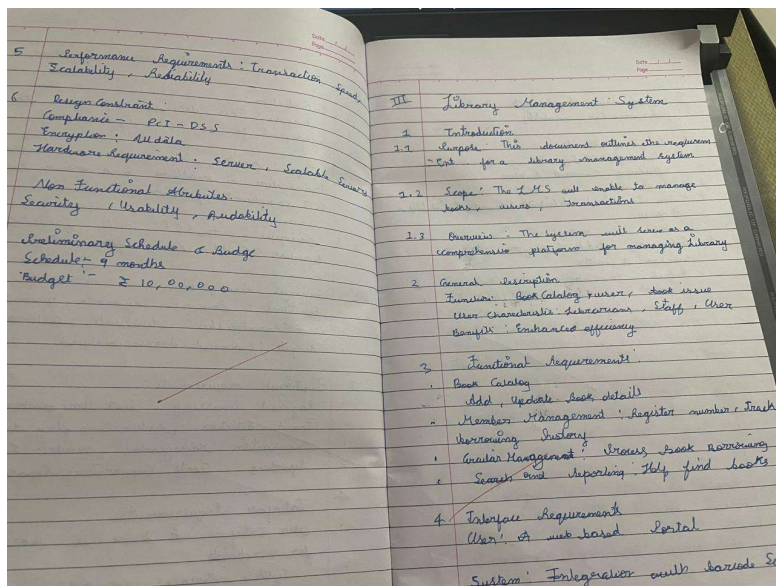 Date
Page
5 Performance Requirements : Transaction Speed,
Scalability, Reliability
6 Design Constraint :
Compliance - PCI - DSS
Encryption : All data
Hardware Requirement : Server, Scalable Servers
Non Functional Attributes.
Securitey, Usability, Audability
Preliminary Schedule & Budge
Schedule - 9 months
Budget :- ₹ 10,00,000
Date
Page
III Library Management System
1 Introduction
1.1 Purpose : This document outlines the requirem
-ent for a library management system
1.2 Scope : The LMS will enable to manage
books, users, transactions
1.3 Overview : The system will serve as a
comprehensive platform for managing Library
2 General Description
Function : Book Catalog, user, book issue
User Characteristic : Librarians, Staff, User
Benefits : Enhanced efficiency
3 Functional Requirements
Book Catalog
Add, Update Book details
Member Management : Register number, Track
borrowing history
Circular Management : Process Book Borrowing
Search and reporting : Help find books
4 Interface Requirements
User : A web based Portal
System : Integration with barcode